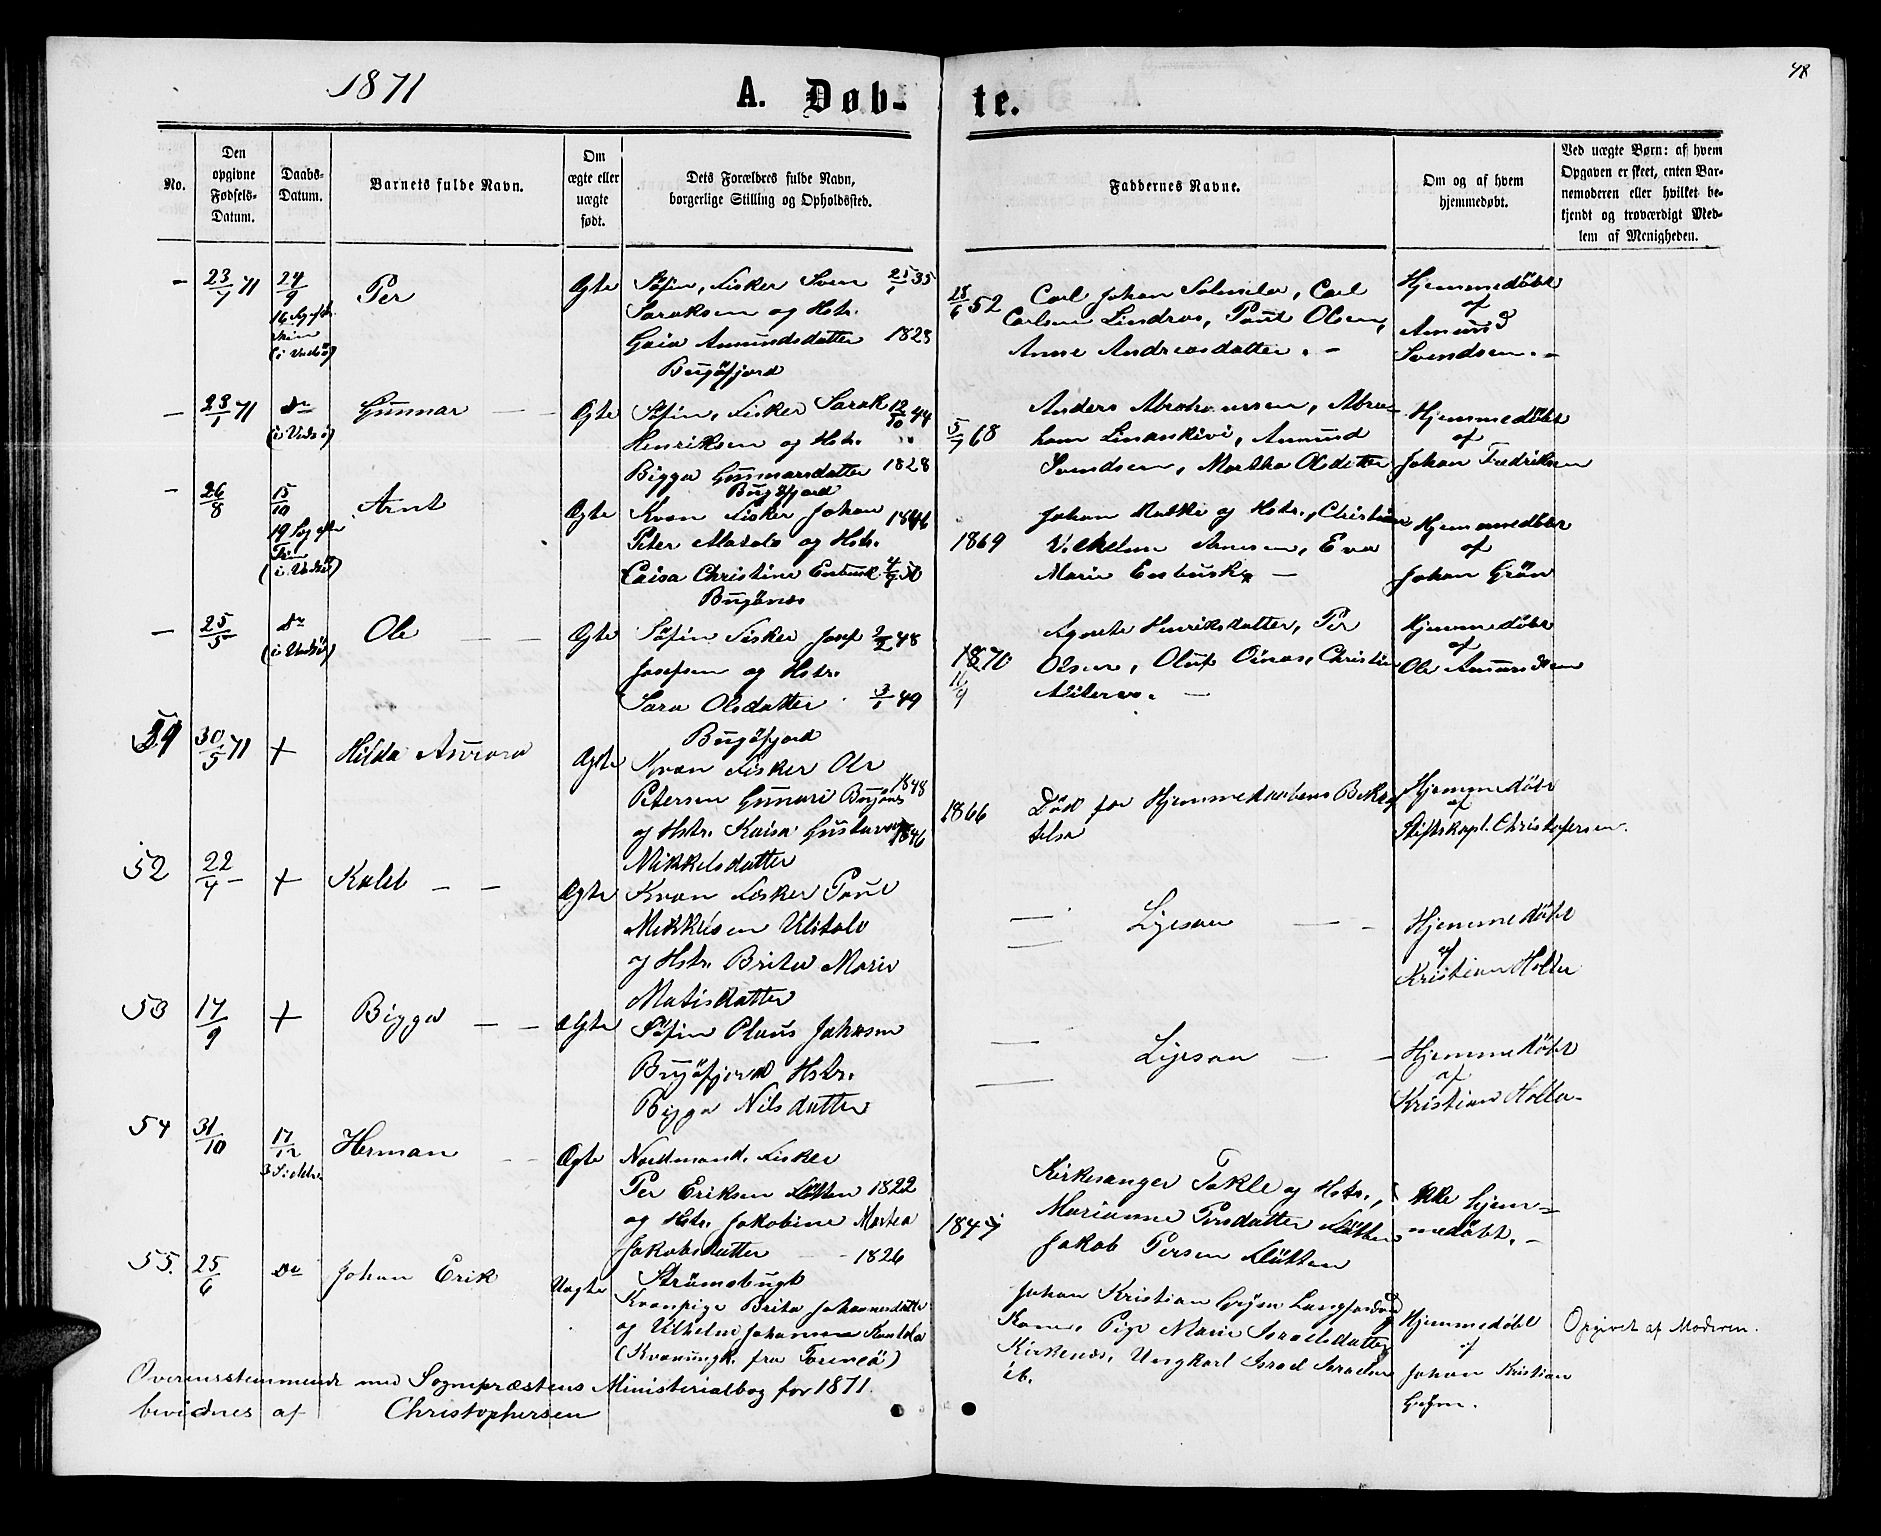 1871
A. Døb-
te.
48
No.
Den
opgivne
Fødsels-
Datum.
Daabs-
Datum.
Barnets fulde Navn.
Om
ægte eller
uægte
født.
Dets Forældres fulde Navn,
borgerlige Stilling og Opholdssted.
Faddernes Navne.
Om og af hvem
hjemmedøbt.
Ved uægte Børn: af hvem
Opgaven er skeet, enten Bar-
nemoderen eller hvilket be-
kjendt og troværdigt Med-
lem af Menigheden.
- 23/7 71
24/9
(i Vadsø)
Per
Ægte
Søfin, Fisker Sven 35
og Hstr.
Amundsdatter 1828
Bugöfjord
52
Carl Johan
Carlsen Lindros, Poul Olsen,
Anne Andreasdatter. -
Hjemmedöbt
af
Amund
Svendsen. -
- 23/1 71
Do
(i Vadsö)
Gunnar - -
Ægte
Söfin, Fisker 12/10 44
Henriksen og Hstr.
Bigga Gunnarsdatter 1828
Bugöfjord
5/7 68
Anders Abrahamsen, Abra-
ham Linankivi, Amund
Svendsen, Martha Olsdatter
Hjemmedöbt
af
Johan Fredriksen
- 26/8
15/10
(i Vadsö)
Arnt
Ægte
Kvæn Fisker Johan 1846
Peter og Hstr.
Caisa Christine
Bugönes
1869
Johan og Hstr., Christian
Vilhelm Arnesen, Eva
Marie -
Hjemmedöbt
af
Johan Grön
- 25/5
Do
(i Vadsö)
Ole - -
Ægte
Söfin Fisker Josef 48
Josefsen og Hstr.
Sara Olsdatter 3/1 49
Bugöfjord
1870
16/9
Agnete Henriksdatter, Per
Olsen, Oluf Christian
-
Hjemmedöbt
af
Ole Amundsen
30/5 71
+
Hilda Aurora
Ægte
Kvæn Fisker Ole
Petersen Bugönes 1848
og Hstr. Kaisa Gustava 1846
Mikkelsdatter
1866
Död för Hjemmedaabens Bekræf-
telse
Hjemmedöbt
af
Stiftskapl. Christofersen.
52
22/4
+
Kaleb - -
Ægte
Kvæn Fisker Poul
Mikkelsen
og Hstr. Brita Marie
Matisdatter
Ligesaa - -
Hjemmedöbt
af
Kristian Holter
53
17/9
+
Bigga - -
Ægte
Söfin Johnsen
Bugöfjord Hstr.
Bigga Nilsdatter
Ligesaa - -
Hjemmedöbt
af
Kristian Holter
54
31/10
17/12
Herman - -
Ægte
Nordmand. Fisker
Per Eriksen 1822
og Hstr. Jakobine Martea
Jakobsdatter - - 1826
Strömsbugt
1847
Kirkesanger Takle og Hstr.,
Marianne Persdatter
Jakob Persen
Ikke hjem-
medöbt. -
55.
25/6
Do
Johan Erik
Uægte
Kvænpige Brita Johannesdatter
og Vilhelm Johansen
(Kvænungk. fra Torneå)
Johan Kristian
Kone, Pige Marie Israelsdatter
Kirkenes, Ungkarl Israel Israelsen
ib.
Hjemmedöbt
af
Johan Kristian
Opgivet af Moderen.
Overensstemmende med Sognepræstens Ministerialbog for 1871.
bevidnes af Christophersen